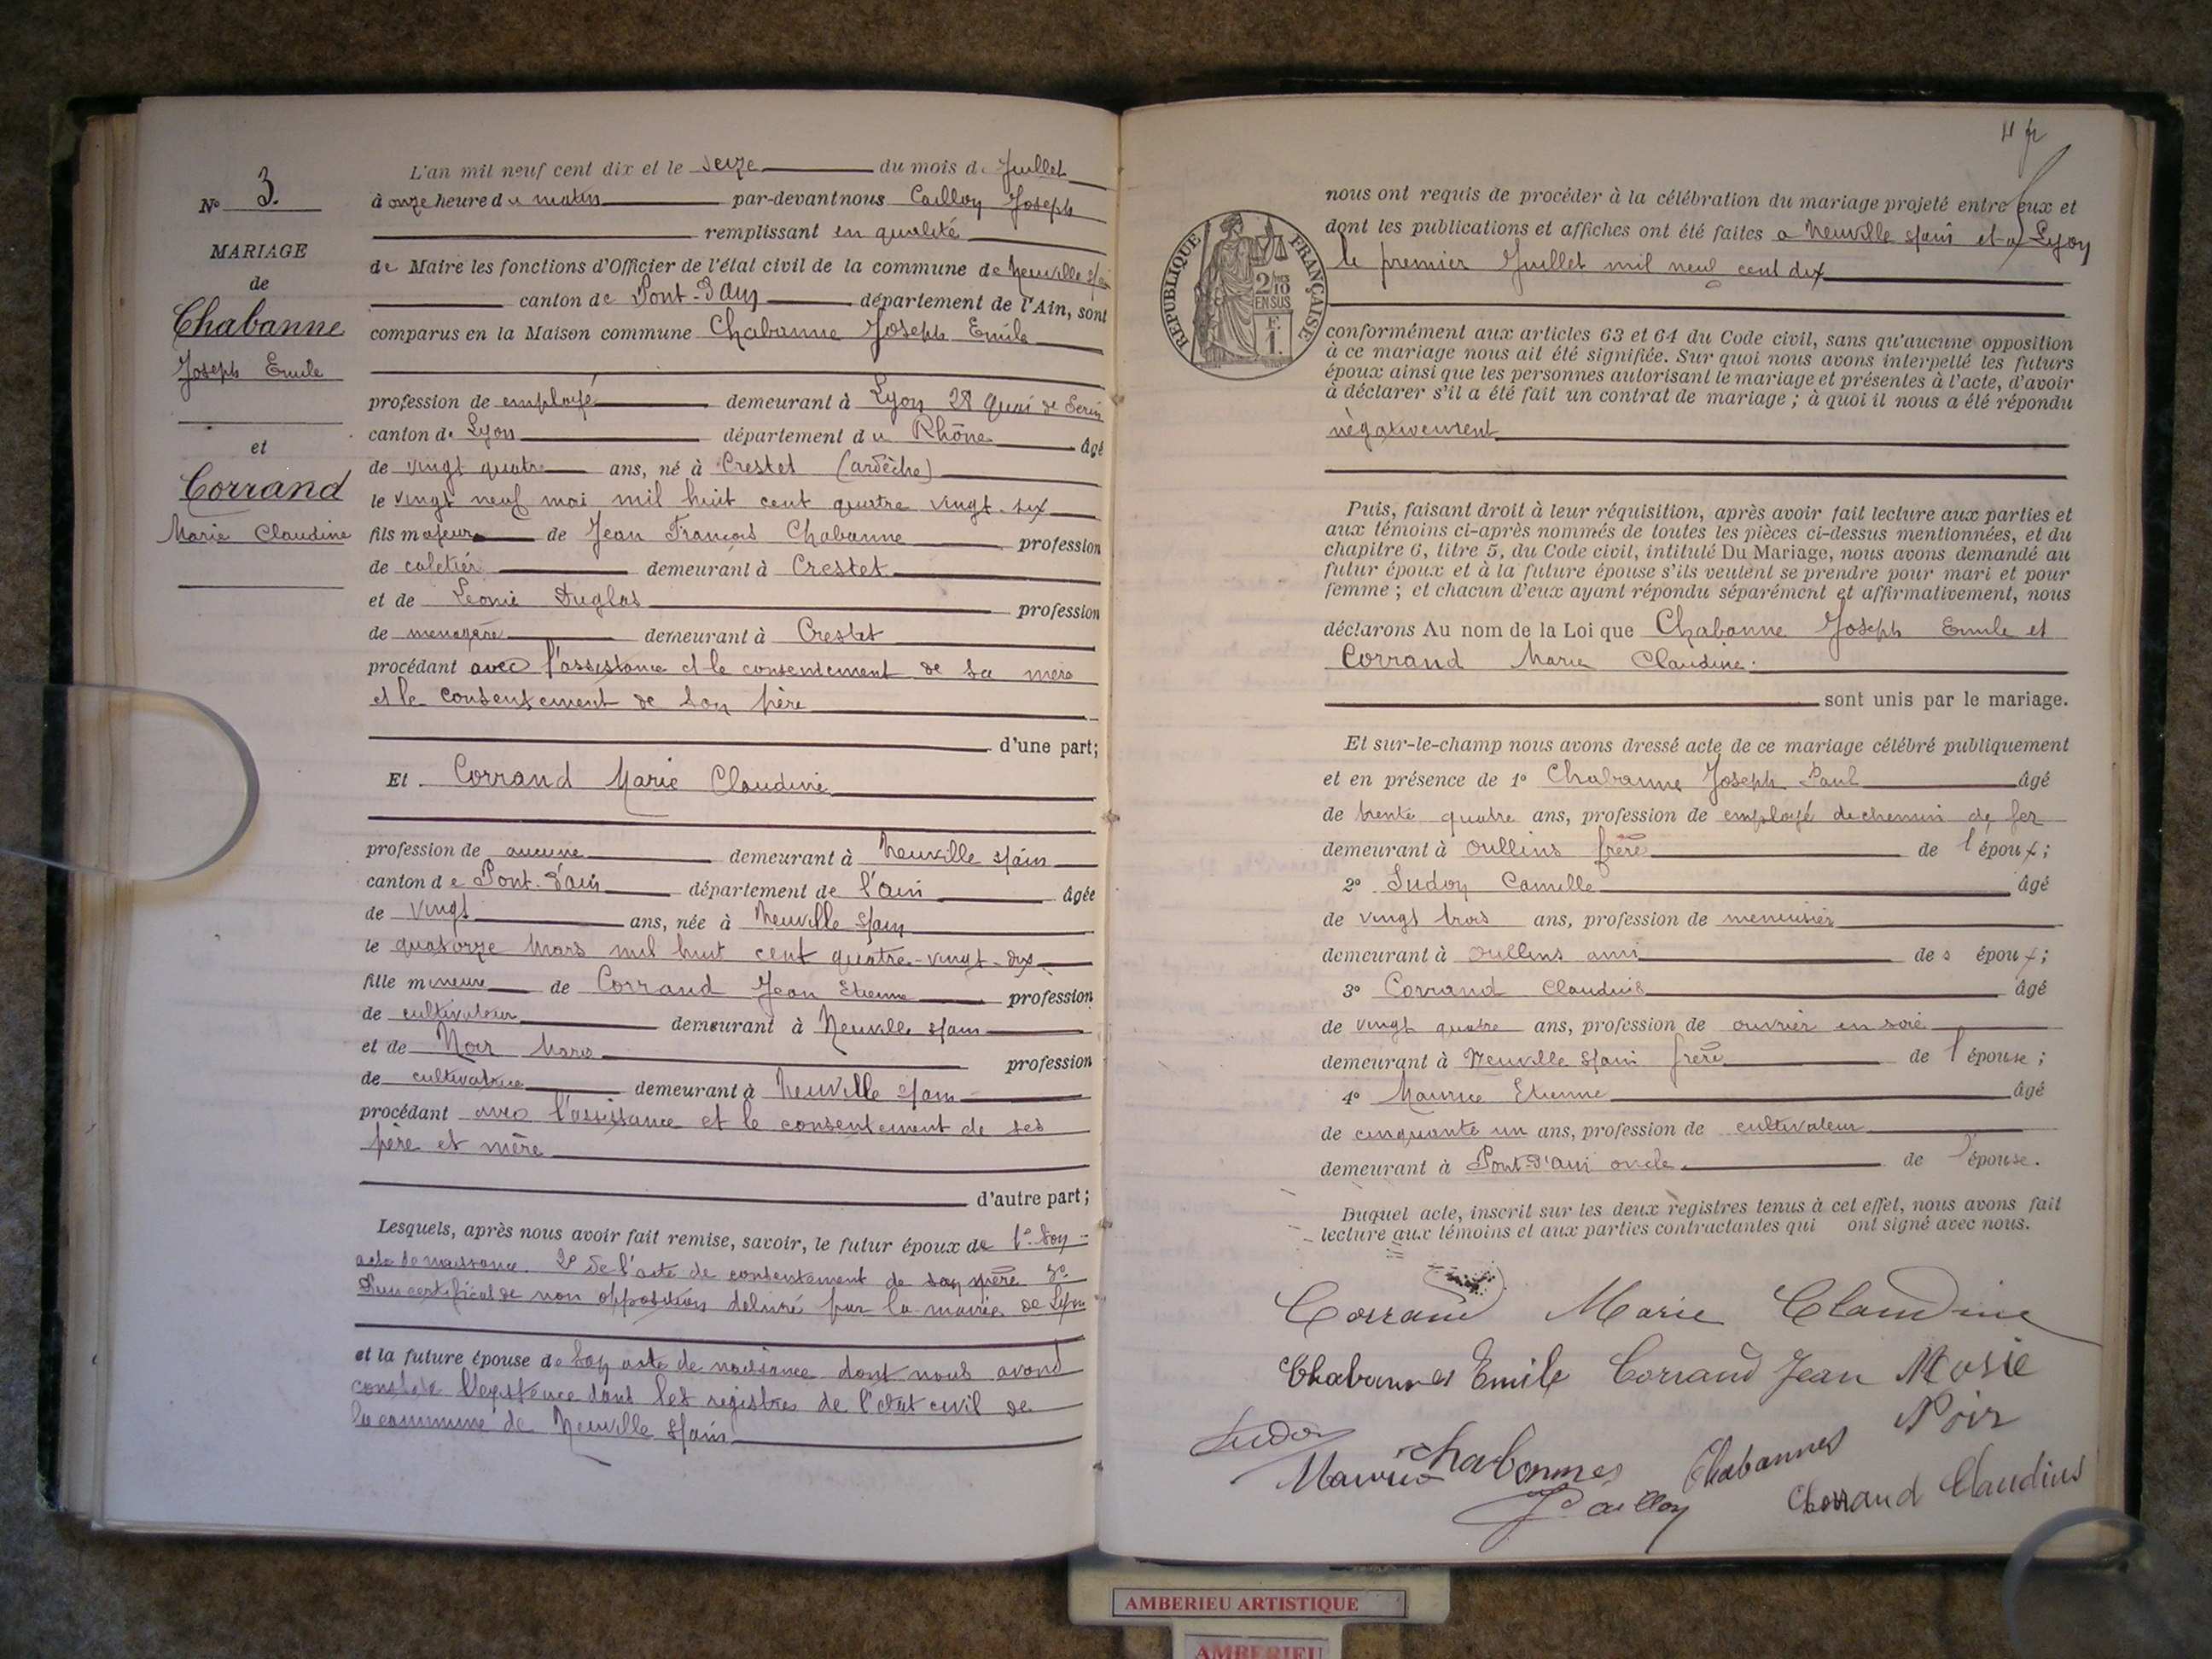 N° 3.
MARIAGE
de
Chabanne
Joseph Emile
et
Corrand
Marie Claudine
L'an mil neuf cent dix et le seize du mois de Juillet
à onze heure du matin par-devant nous Cailloy Joseph
remplissant en qualité
de Maire les fonctions d'Officier de l'état civil de la commune de Neuville s/
canton de Pont-d'Ain département de l'Ain, sont
comparus en la Maison commune Chabanne Joseph Emile
profession de employé demeurant à Lyon 28 Quai de Serin
canton de Lyon département du Rhône âgé
de vingt quatre ans, né à Crestet (ardèche)
le vingt neuf mai mil huit cent quatre vingt-six
fils majeur de Jean François Chabanne profession
de demeurant à Crestet
et de Leonie Duglas profession
de menagère demeurant à Crestet
procédant avec l'assistance et le consentement de sa mère
et le consentement de son père
d'une part;
Et Corrand Marie Claudine
profession de aucune demeurant à Neuville s/ain
canton de Pont-d'ain département de l'ain âgée
de vingt ans, née à Neuville s/ain
le quatorze Mars mil huit cent quatre-vingt-dix
fille mineure de Corrand Jean Etienne profession
de cultivateur demeurant à Neuville s/ain
et de Noir Marie profession
de cultivatrice demeurant à Neuville s/ain
procédant avec l'assistance et le consentement de ses
père et mère
d'autre part;
Lesquels, après nous avoir fait remise, savoir, le futur époux de 1° Son
acte de naissance. 2° de l'acte de consentement de son père 3°
D'un certificat de non opposition delivré par la mairie de Lyon
et la future épouse de Son acte de naissance dont nous avons
constaté l'existence dans les registres de l'état civil de
la commune de Neuville s/ain
nous ont requis de procéder à la célébration du mariage projeté entre eux et
dont les publications et affiches ont été faites a Neuville s/ain et a Lyon
le premier Juillet mil neuf cent dix
RÉPUBLIQUE FRANÇAISE
2/10
EN SUS
F.
1.
conformément aux articles 63 et 64 du Code civil, sans qu'aucune opposition
à ce mariage nous ait été signifiée. Sur quoi nous avons interpellé les futurs
époux ainsi que les personnes autorisant le mariage et présentes à l'acte, d'avoir
à déclarer s'il a été fait un contrat de mariage ; à quoi il nous a été répondu
négativement
Puis, faisant droit à leur réquisition, après avoir fait lecture aux parties et
aux témoins ci-après nommés de toutes les pièces ci-dessus mentionnées, et du
chapitre 6, titre 5, du Code civil, intitulé Du Mariage, nous avons demandé au
futur époux et à la future épouse s'ils veulent se prendre pour mari et pour
femme ; et chacun d'eux ayant répondu séparément et affirmativement, nous
déclarons Au nom de la Loi que Chabanne Joseph Emile et
Corrand Marie Claudine.
sont unis par le mariage.
Et sur-le-champ nous avons dressé acte de ce mariage célébré publiquement
et en présence de 1° Chabanne Joseph Paul âgé
de trente quatre ans, profession de employé de chemin de fer
demeurant à Oullins frère de l'époux;
2° Sudon Camille âgé
de vingt trois ans, profession de menuisier
demeurant à Oullins ami des époux;
3° Corrand Claudius âgé
de vingt quatre ans, profession de ouvrier en soie
demeurant à Neuville s/ain frère de l'épouse;
4° Maurice Etienne âgé
de cinquante un ans, profession de cultivateur
demeurant à Pont-d'ain oncle de l'épouse.
Duquel acte, inscrit sur les deux registres tenus à cet effet, nous avons fait
lecture aux témoins et aux parties contractantes qui ont signé avec nous.
Corrand Marie Claudine
Chabannes Emile Corrand Jean Marie
Noir
Sudon
Maurice Chabannes Chabannes
Cailloy Corrand Claudius
AMBERIEU ARTISTIQUE
AMBERIEU